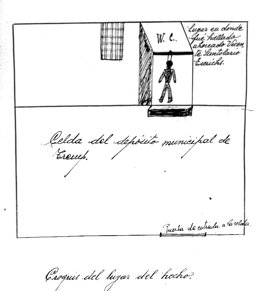 W. C.
Lugar en donde
fué hallado
ahorcado Vicen
te
Celda del depósito municipal de
Tremp.
Puerta de entrada a la celda
Croquis del lugar del hecho.